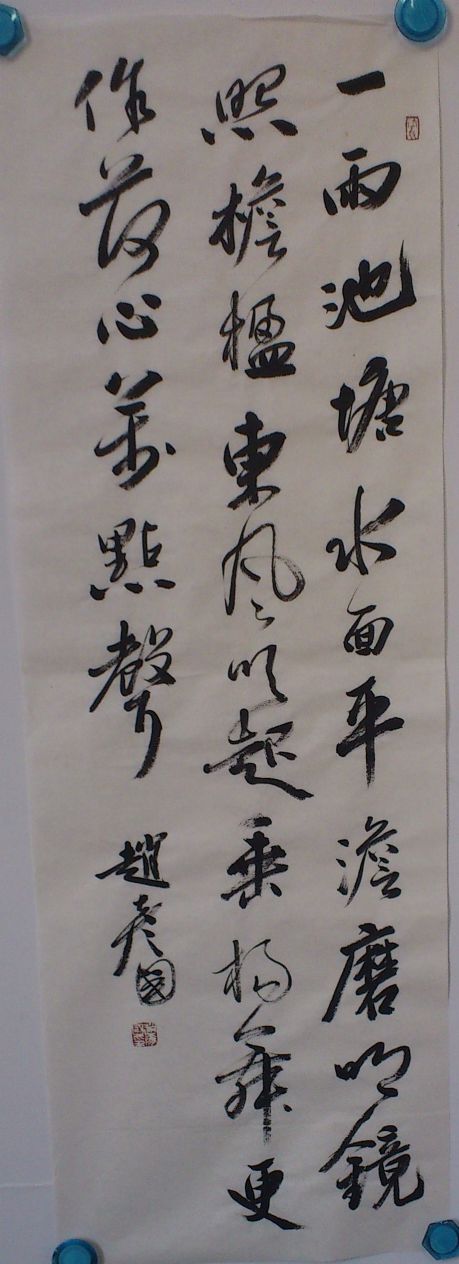 一雨池塘水面平澹磨明鏡
照檐楹東風吹起垂楊舞更
作荷心萬點聲
趙彥國